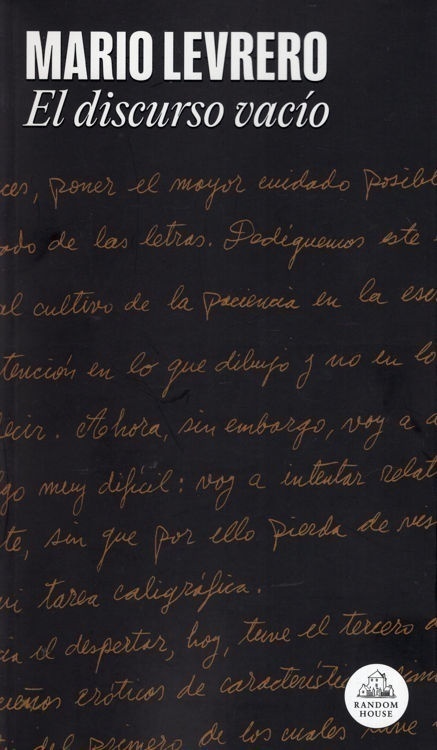 MARIO LEVRERO
El discurso vacío
ces, poner el mayor cuidado posibl
ado de las letras. Dediquemos este
al cultivo de la paciencia en la esc
tención en lo que dibujo y no en lo
decir. Ahora, sin embargo, voy a
lgo muy difícil: voy a intentar relat
te, sin que por ello pierda de vis
mi tarea caligráfica.
cia el despertar, hoy, tuve el tercero
ueños eróticos de característi
del primero de los cuales tuve
RANDOM
HOUSE